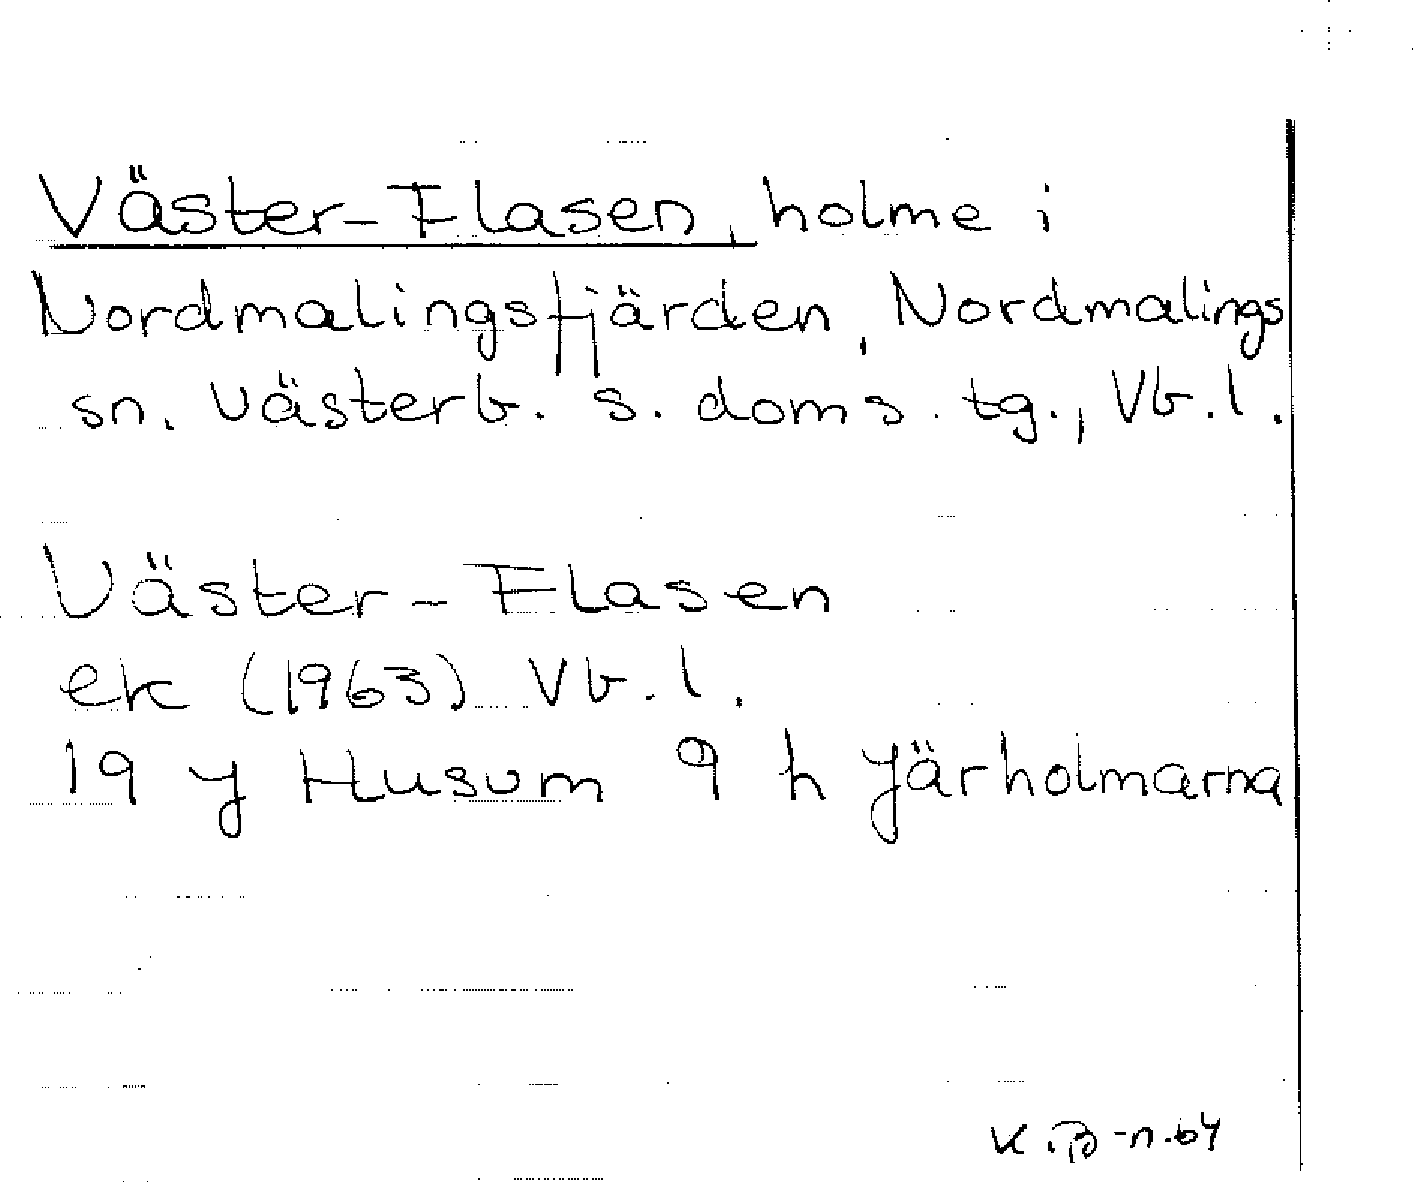 Väster-Flasen, holme i
Nordmalingsfjärden, Nordmalings
sn. Västerb. s. doms. tg., Vb. l.
Väster-Flasen
ek (1963) Vb. l.
19 y Husum 9 h Järholmarna
K.B-n.64